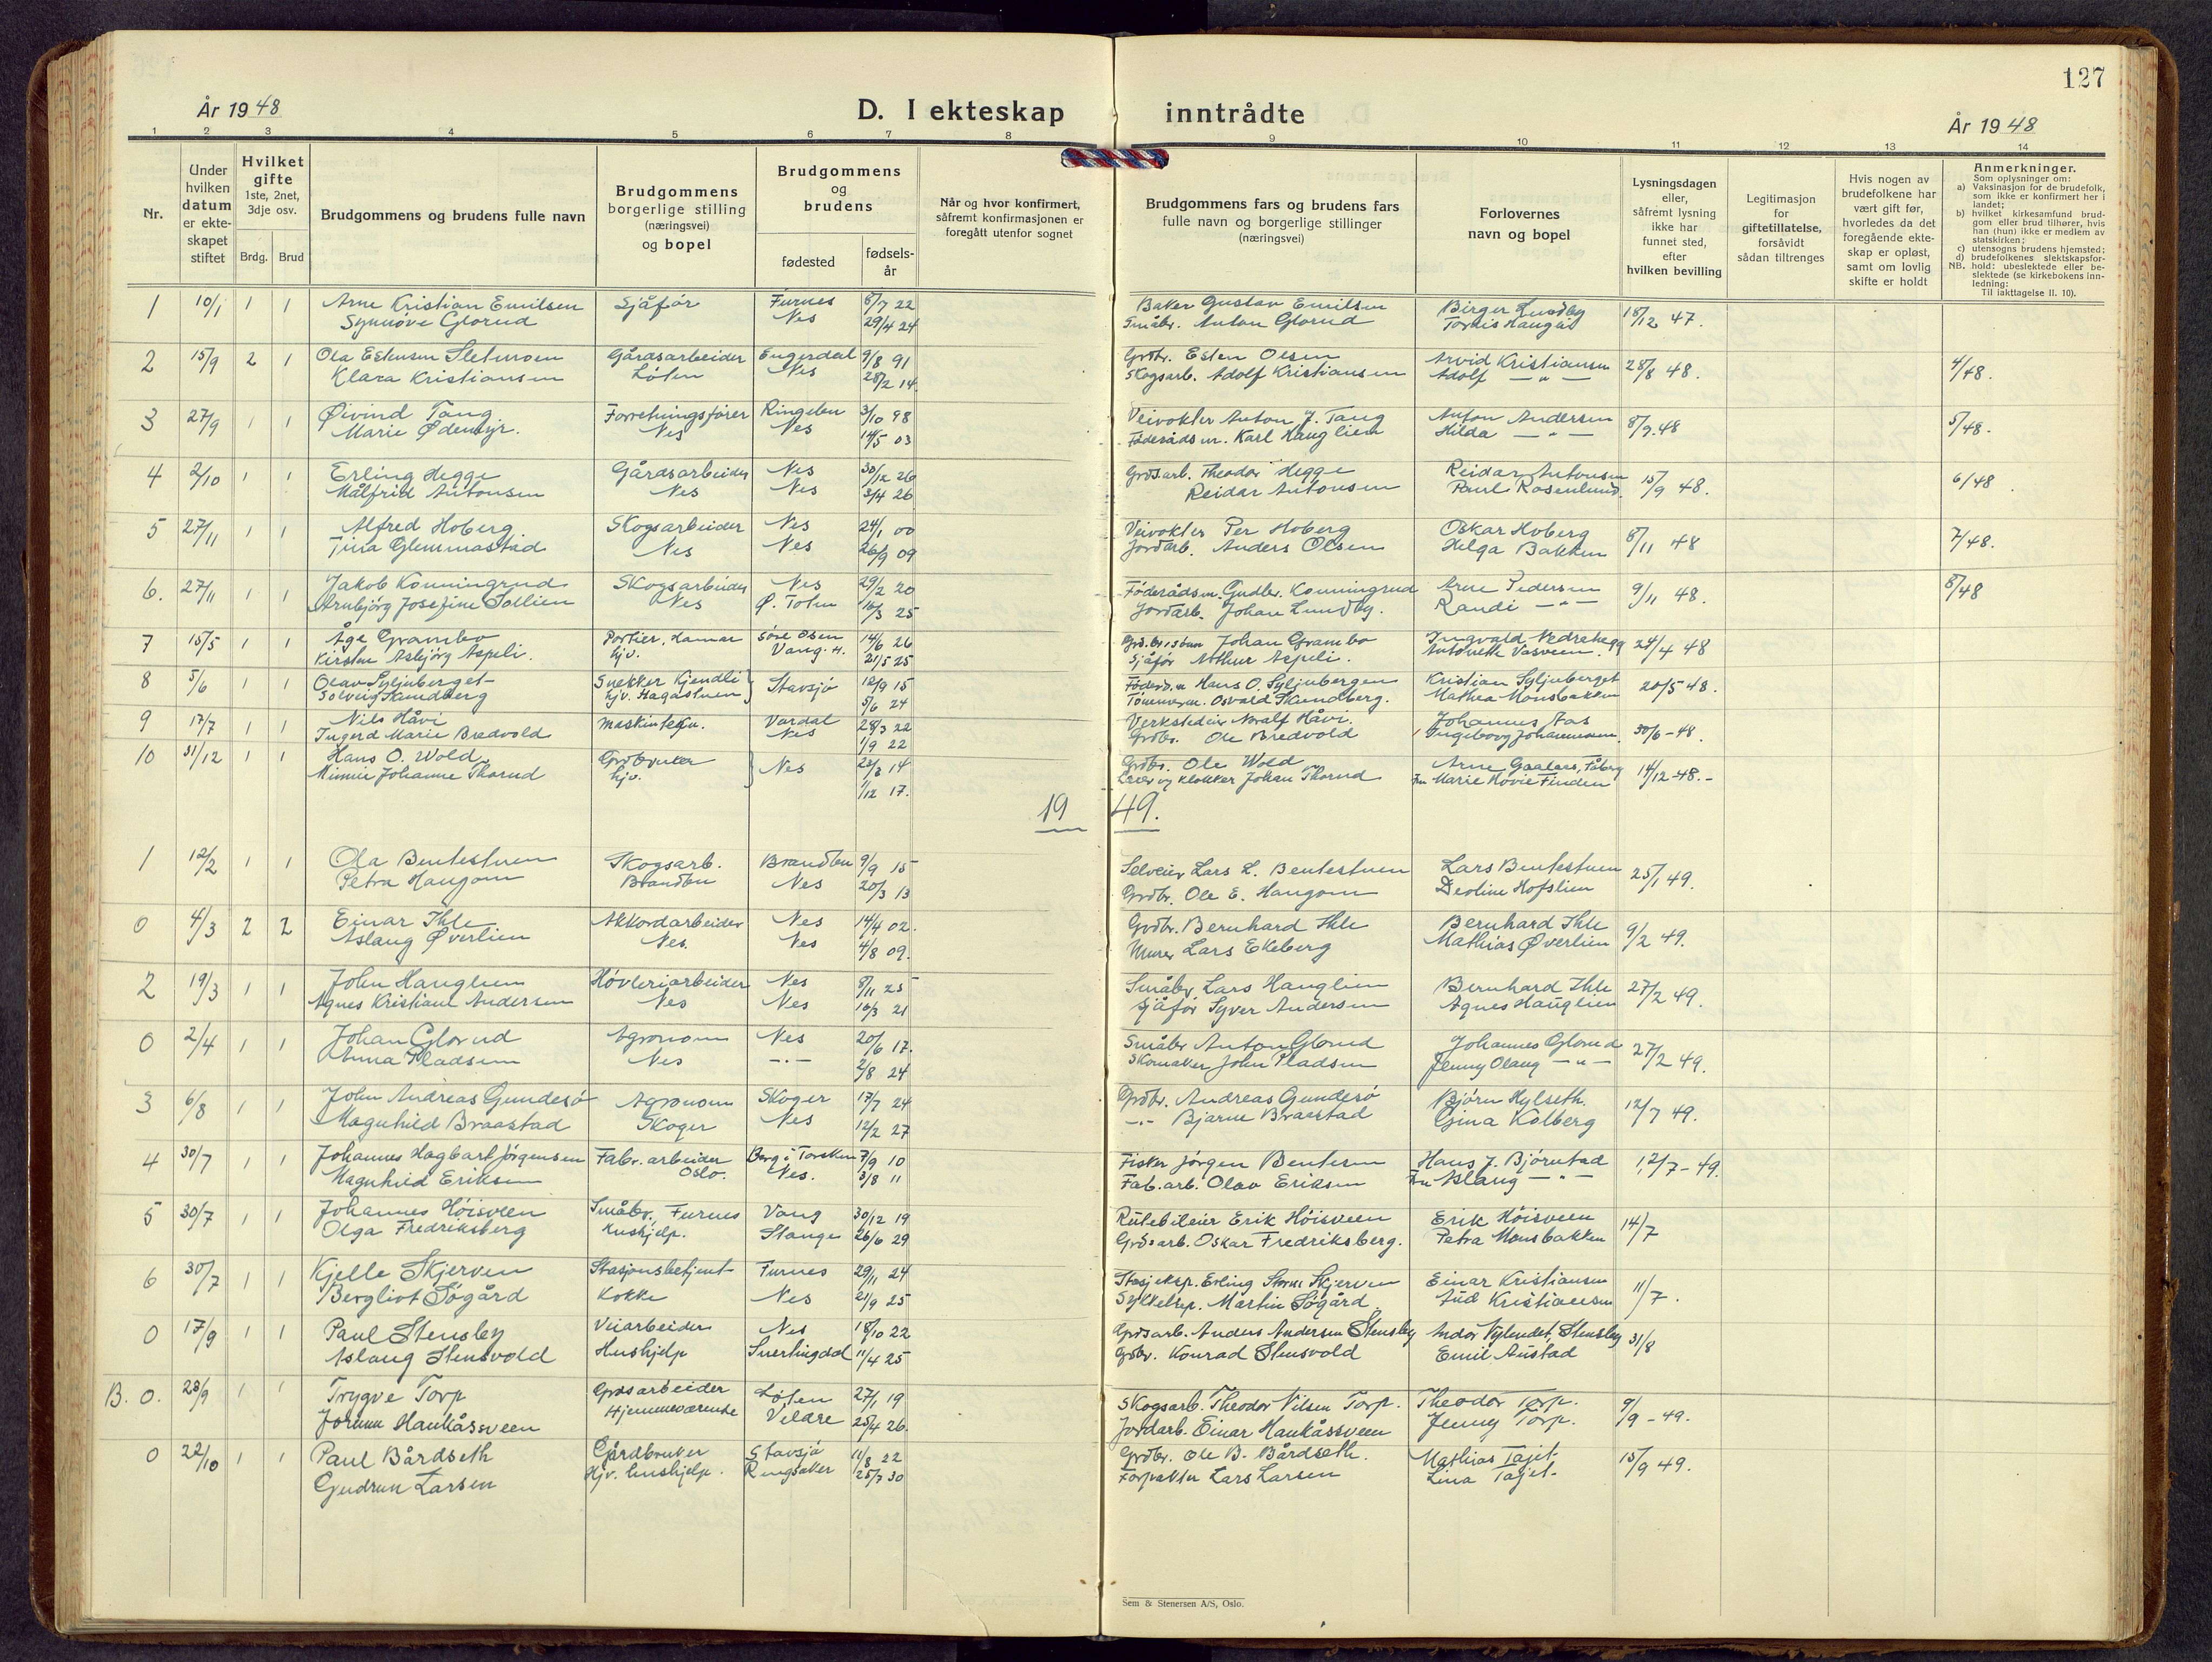 127
År 1948
D. I ekteskap inntrådte
År 1948
1 2 3 4 5 6 7 8 9 10 11 12 13 14
Nr.
Under hvilken datum er ekteskapet stiftet
Hvilket gifte 1ste, 2net, 3dje osv.
Brdg. Brud
Brudgommens og brudens fulle navn
Brudgommens borgerlige stilling (næringsvei) og bopel
Brudgommens og brudens
fødested
fødselsår
Når og hvor konfirmert, såfremt konfirmasjonen er foregått utenfor sognet
Brudgommens fars og brudens fars fulle navn og borgerlige stillinger (næringsvei)
Forlovernes navn og bopel
Lysningsdagen eller, såfremt lysning ikke har funnet sted, efter hvilken bevilling
Legitimasjon for giftetillatelse, forsåvidt sådan tiltrenges
Hvis nogen av brudefolkene har vært gift før, hvorledes da det foregående ekteskap er opløst, samt om lovlig skifte er holdt
Anmerkninger.
Som oplysninger om:
a) Vaksinasjon for de brudefolk, som ikke er konfirmert her i landet;
b) hvilket kirkesamfund brudgom eller brud tilhører, hvis han (hun) ikke er medlem av statskirken;
c) utensogns brudens hjemsted;
d) brudefolkenes slektskapsforhold: ubeslektede eller beslektede (se kirkebokens innledning:
NB.
Til iakttagelse II. 10).
1 10/1 1 1 Arne Kristian Emilsen Sjåfør Furnes 8/7 22 Baker Gustav Emilsen Birger Lundby 18/12 47.
Synnöve Glorud Nes 29/4 24 Småbr. Anton Glorud
2 15/9 2 1 Ola Estensen Sletmoen Gårdsarbeider Engerdal 9/8 91 Grdbr. Esten Olsen Arvid Kristiansen 28/8 48. 4/48.
Klara Kristiansen Løten Nes 28/2 14. Skogsarb. Adolf Kristiansen Adolf — " —
3 27/9 1 1 Øivind Tang Forretningsfører Ringebu 3/10 98 Veivokter Anton J. Tang Anton Andersen 8/9.48 5/48.
Marie Ødemyr. Nes Nes 14/5 03 Føderådsm. Karl Hauglien Hilda — " —
4 2/10 1 1 Erling Hegge Gårdsarbeider Nes 30/12 26 Grdsarb. Theodor Hegge Reidar Antonsen 15/9 48. 6/48
Målfrid Antonsen Nes Nes 3/4 26 Reidar Antonsen Paul Rosenlund.
5 27/11 1 1 Alfred Hoberg Skogsarbeider Nes 24/1 00 Veivokter Per Hoberg Oskar Hoberg 8/11 48 7/48.
Tina Glemmastad Nes Nes 26/9 09 Jordarb. Anders Olsen Helga Bakken
6. 27/11 1 1 Jakob Konningrud Skogsarbeider Nes 29/2 20 Føderådsm. Gudbr. Konningrud Arne Pedersen 9/11 48. 8/48
Arnbjörg Josefine Sollien Nes Ø. Toten 16/3 25 Jordarb. Johan Lundby. Randi — " —
7 15/5 1 1 Åge Grambo Portier, Hamar Søre Osen 14/6 26 Johan Grambo 24/4 48
Kirsten Asbjörg Aspeli. hjv. Vang. H. 21/5 25 Sjåfør Arthur Aspeli. Antonette Vasveen.
8 5/6 1 1 Olav Syljuberget Snekker Kjendli Stavsjø 12/9 15 Hans O. Syljubergen Kristian Syljuberget 20/5 48.
Solveig Skundberg hjv. Hagastuen 5/6 24 Osvald Skundberg. Mathea Monsbakken
9 17/7 1 1 Nils Håvi maskintekn. Vardal 28/3 22 Verkstedeier Noralf Håvi. Johannes Aas 30/6-48.
Ingerd Marie Bredvold Nes 1/9 22 Grdbr. Ole Bredvold Ingeborg Johannessen
10 31/12 1 1 Hans O. Wold Grdbruker Nes 14 Grdbr. Ole Wold Arne Gaalaas, Fåberg 14/12-48.-
Minnie Johanne Thorud hjv. 1/12 17. Lærer og klokker Johan Thorud Fru Marie Hovie Finden
1949.
1 12/2 1 1 Ola Bentestuen Skogsarb. Brandbu 9/9 15 Selveier Lars L. Bentestuen Lars Bentestuen 25/1 49.
Petra Haugom Brandbu Nes 20/3 13 Grdbr. Ole E. Haugom Deoline Hofslien
0 4/3 2 2 Einar Ihle Akkordarbeider Nes 14/4 02. Grdbr. Bernhard Ihle Bernhard Ihle 9/2 49.
Aslaug Øverlien Nes. Nes 4/8 09. Murer Lars Ekeberg Mathias Øverlien
2 19/3 1 1 John Hauglien Høvleriarbeider Nes 8/11 25 Småbr. Lars Hauglien Bernhard Ihle 27/2 49.
Agnes Kristiane Andersen Nes Nes 16/3 21 Sjåfør Syver Andersen Agnes Hauglien
0 2/4 1 1 Johan Glorud Agronom Nes 20/6 17. Småbr Anton Glorud Johannes Glorud 27/2 49.
Anna Pladsen Nes —.— 2/8 24 Skomaker John Pladsen Jenny Olaug — " —
3 6/8 1 1 John Andreas Gundesø Agronom Skoger 17/7 24 Grdbr. Andreas Gundesø Bjørn Hylseth. 12/7 49.
Magnhild Braastad Skoger Nes 12/2 27 —.— Bjarne Braastad Gina Kolberg
4 30/7 1 1 Johannes Hagbart Jörgensen Fabr. arbeider Berg i Torsken 7/9 10 Fisker Jörgen Bentesen Hans J. Bjørnstad 12/7-49.
Magnhild Eriksen Oslo. Nes. 3/8 11 Fab.arb. Olav Eriksen Fru Aslaug — " —
5 30/7 1 1 Johannes Höisveen Småbr. Furnes Vang 30/12 19 Rutebileier Erik Höisveen Erik Höisveen 14/7
Olga Fredriksberg Hushjelp. Stange 26/6 29 Grdsarb. Oskar Fredriksberg. Petra Monsbakken
6 30/7 1 1 Kjelle Skjerven Stasjonsbetjent Furnes 29/11 24 Stasj eksp. Erling Skjerven Einar Kristiansen 11/7.
Bergliot Søgård Kokke Nes 21/9 25 Sykkelrep. Martin Søgård Aud Kristiansen
0 17/9 1 1 Paul Stensby Veiarbeider Nes 18/10 22 Grdsarb. Anders Andersen Stensby Andor Nylendet, Stensby 31/8
Aslaug Stensvold Hushjelp Snertingdal 11/4 25 Gdbr. Konrad Stensvold Emil Austad
B. 0. 28/9 1 1 Trygve Torp Grdsarbeider Løten 27/1 19 Skogsarb. Theodor Nilsen Torp. Theodor Torp. 9/9-49.
Jorunn Haukåssveen Hjemmeværende Veldre 25/4 26. Jordarb. Einar Haukåssveen Jenny Torp.
0 22/10 1 1 Paul Bårdseth Gårdbruker Stavsjø 11/8 22 Grdbr. Ole B. Bårdseth. Mathias Tajet 15/9 49.
Gudrun Larsen Hjv. hushjelp. Ringsaker 25/7 30 Forpakter Lars Larsen Lina Tajet
Sem & Stenersen A/S, Oslo.